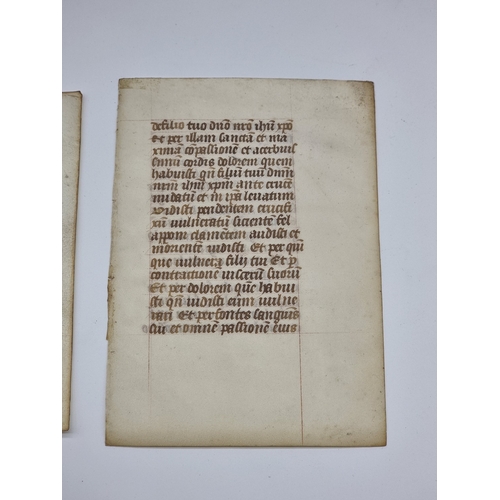 de filio tuo dño nr̃o ihũ xp̃o
Et per illam sanctã et ma
ximã cõpassionẽ et acerbuis
simũ cordis dolorem quem
habuisti qñ filiũ tuũ dñm
nr̃m ihm̃ xpm̃ ante crucẽ
nudatũ et in ip̃a leuatum
vidisti pendentem crucifi
xũ vulneratũ sicientẽ fel
appoñ clamãtem audisti et
morientẽ vidisti Et per qui
que vulnera filij tui Et p
contractionẽ viscerũ suorũ
Et per dolorem quẽ habui
sti qñ vidisti eum vulne
rari Et per fontes sanguis
sui et omnẽ passionẽ eius